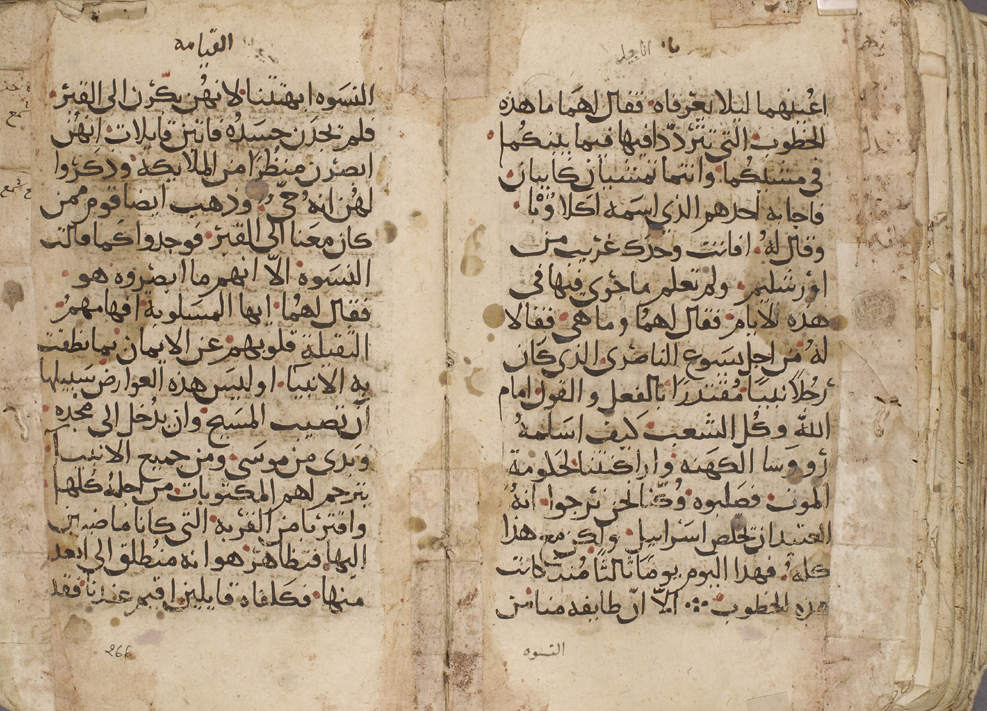 اعينهما ليلا يعرفاه فقال لهما ما هذه
الخطوب التي تترددا فيها فيما بينكما
في مشيكما وانتما تمشيان كايبان
فاجابه احدهم الذي اسمه اكلاوبا
وقال له افانت وحدك غريب من
اورشليم ولم تعلم ما جرى فيها في
هذه الايام فقال لهما وما هي فقالا
له من اجل يسوع الناصري الذي كان
رجلا نبيا مقتدرا بالفعل والقول امام
الله وكل الشعب كيف اسلمه
رووسا الكهنه واراكنتنا لحكومة
الموت فصلبوه وكنا نحن نرجوا انه
العتيد ان يخلص اسراييل ولكن مع هذا
كله فهذا اليوم يوما ثالثا منذ كانت
هذه الخطوب الا ان طايفه منا من
النسوه
القيامه
النسوه ابهتتنا لانهن بكرن الى القبر
فلم يجدن جسده فاتين قايلات انهن
ابصرن منظرا من الملايكة وذكروا
لهن انه حي وذهب ايضا قوم ممن
كان معنا الى القبر فوجدوا كما قالت
النسوة الا انهم ما ابصروه هو
فقال لهما ايها المسلوبة افهامهم
الثقيلة قلوبهم عن الايمان بما نطقت
به الانبيا اوليس هذه العوارض سبيلها
ان تصيب المسيح وان يدخل الى مجده
وبدى من موسى ومن جميع الانبيا
يترجم لهم المكتوبات من اجله كلها
واقتربا من القرية التي كانا ماضيين
اليها فتظاهر هو انه منطلق الى ابعد
منها فكلفاه قايلين اقيم عندنا فقد
266